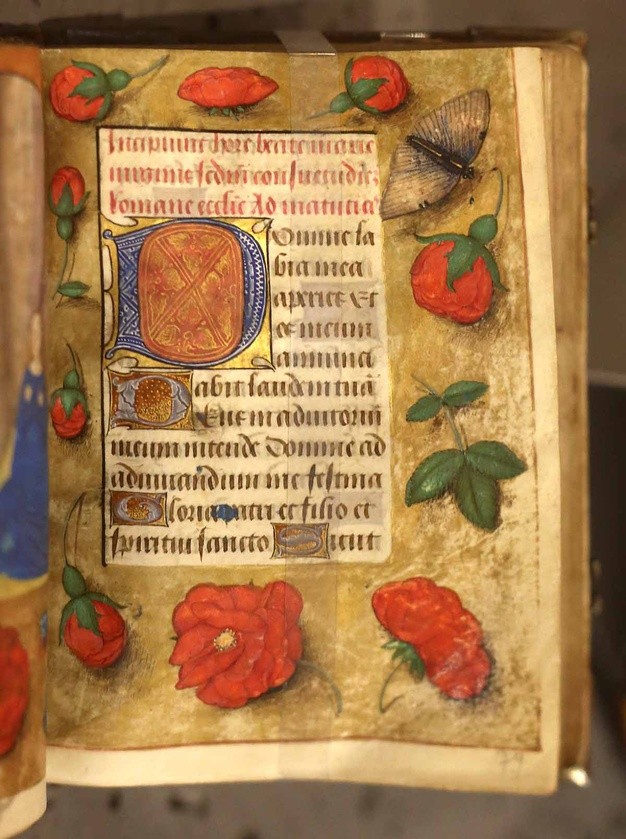 Incipiunt hore beate marie
virginis scdm consuetudi
Romane ecclie Ad matutinas
Domine la
bia mea
aperies Et
os meum
annunci
abit laudem tuā
Deus in adiutoriū
meum intende Domine ad
adiuuandum me festina
Gloria patri et filio et
spiritui sancto Sicut